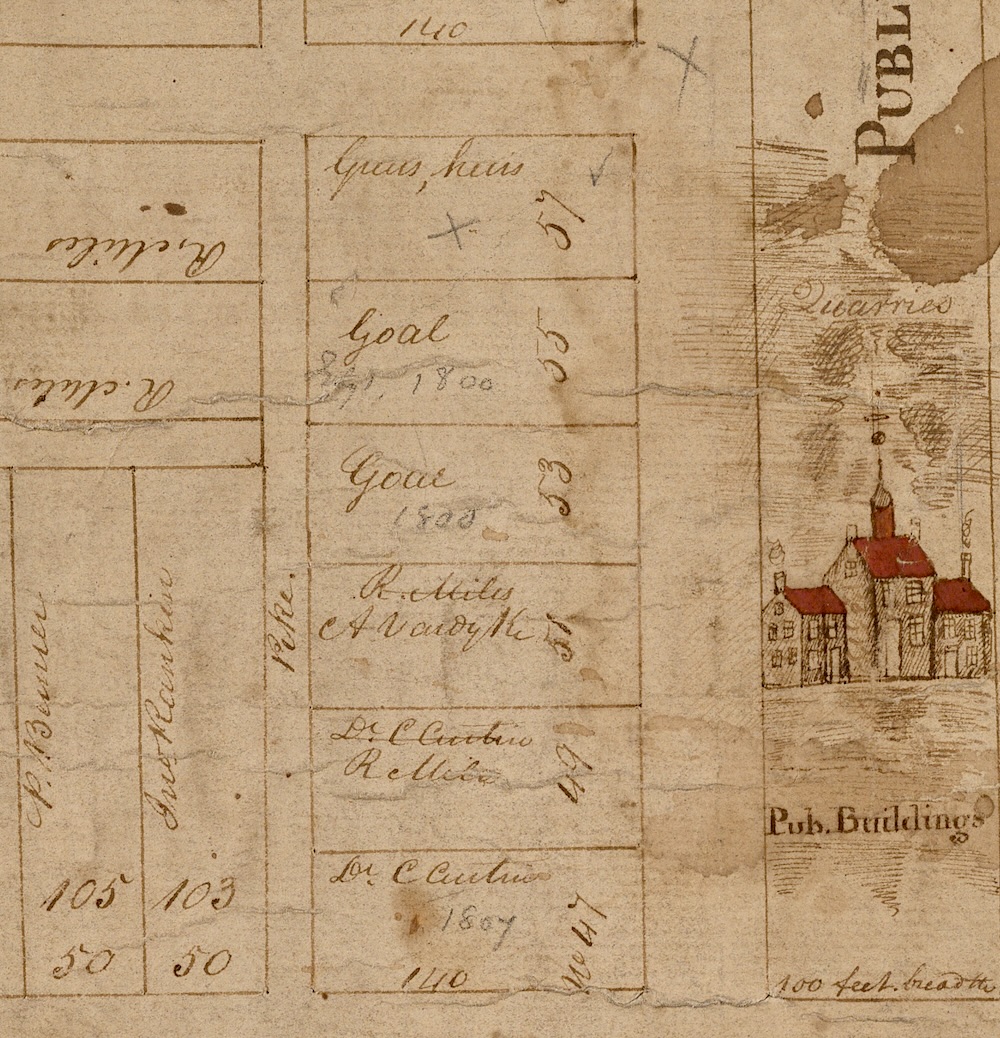 140
PUBL
R. Miles
R. Miles
heirs
57
Goal
1800
55
Goal
1800
53
R. Miles
A Vandyke
51
Dr. C Curtin
R Miles
49
Dr. C Curtin
1807
No 47
140
Pike.
P. Benner
Jno Rankin
105
103
50
50
Quarries
Pub. Buildings
100 feet. breadth